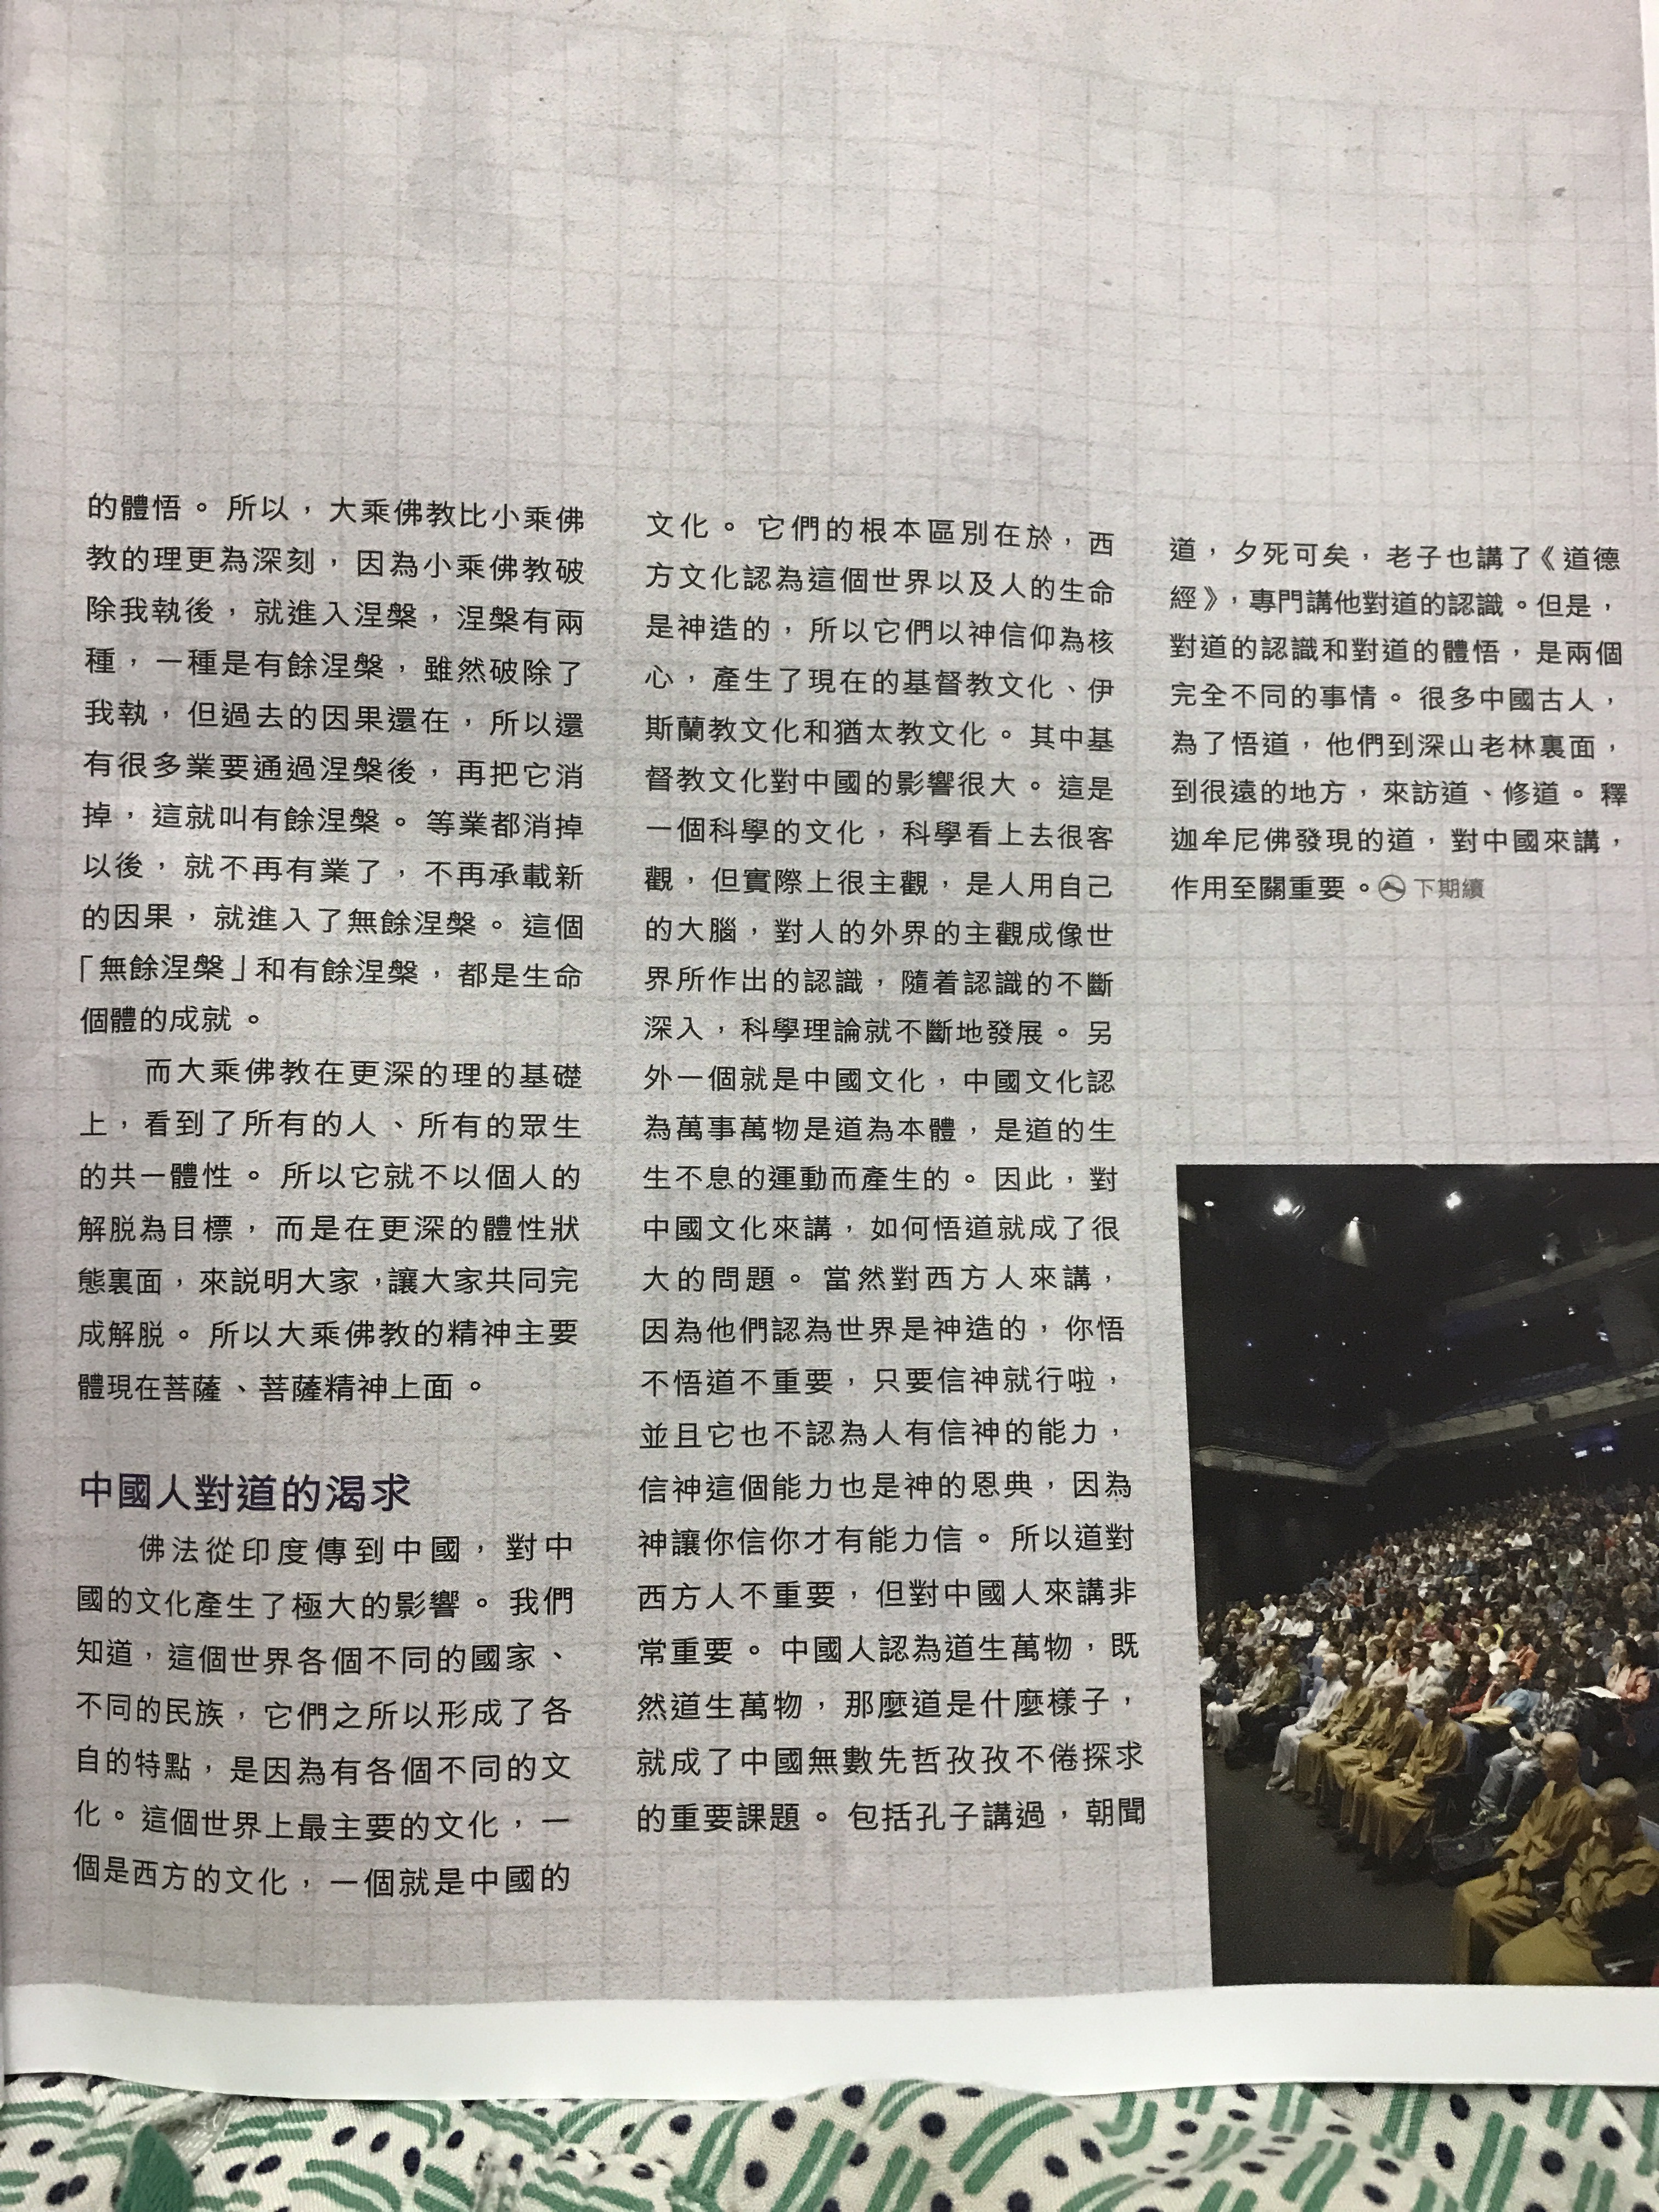 的體悟。所以，大乘佛教比小乘佛
教的理更為深刻，因為小乘佛教破
除我執後，就進入涅槃，涅槃有兩
種，一種是有餘涅槃，雖然破除了
我執，但過去的因果還在，所以還
有很多業要通過涅槃後，再把它消
掉，這就叫有餘涅槃。等業都消掉
以後，就不再有業了，不再承載新
的因果，就進入了無餘涅槃。這個
「無餘涅槃」和有餘涅槃，都是生命
個體的成就。
而大乘佛教在更深的理的基礎
上，看到了所有的人、所有的眾生
的共一體性。所以它就不以個人的
解脱為目標，而是在更深的體性狀
態裏面，來説明大家，讓大家共同完
成解脱。所以大乘佛教的精神主要
體現在菩薩、菩薩精神上面。
中國人對道的渴求
佛法從印度傳到中國，對中
國的文化產生了極大的影響。我們
知道，這個世界各個不同的國家、
不同的民族，它們之所以形成了各
自的特點，是因為有各個不同的文
化。這個世界上最主要的文化，一
個是西方的文化，一個就是中國的
文化。它們的根本區別在於，西
方文化認為這個世界以及人的生命
是神造的，所以它們以神信仰為核
心，產生了現在的基督教文化、伊
斯蘭教文化和猶太教文化。其中基
督教文化對中國的影響很大。這是
一個科學的文化，科學看上去很客
觀，但實際上很主觀，是人用自己
的大腦，對人的外界的主觀成像世
界所作出的認識，隨着認識的不斷
深入，科學理論就不斷地發展。另
外一個就是中國文化，中國文化認
為萬事萬物是道為本體，是道的生
生不息的運動而產生的。因此，對
中國文化來講，如何悟道就成了很
大的問題。當然對西方人來講，
因為他們認為世界是神造的，你悟
不悟道不重要，只要信神就行啦，
並且它也不認為人有信神的能力，
信神這個能力也是神的恩典，因為
神讓你信你才有能力信。所以道對
西方人不重要，但對中國人來講非
常重要。中國人認為道生萬物，既
然道生萬物，那麼道是什麼樣子，
就成了中國無數先哲孜孜不倦探求
的重要課題。包括孔子講過，朝聞
道，夕死可矣，老子也講了《道德
經》，專門講他對道的認識。但是，
對道的認識和對道的體悟，是兩個
完全不同的事情。很多中國古人，
為了悟道，他們到深山老林裏面，
到很遠的地方，來訪道、修道。釋
迦牟尼佛發現的道，對中國來講，
作用至關重要。下期續